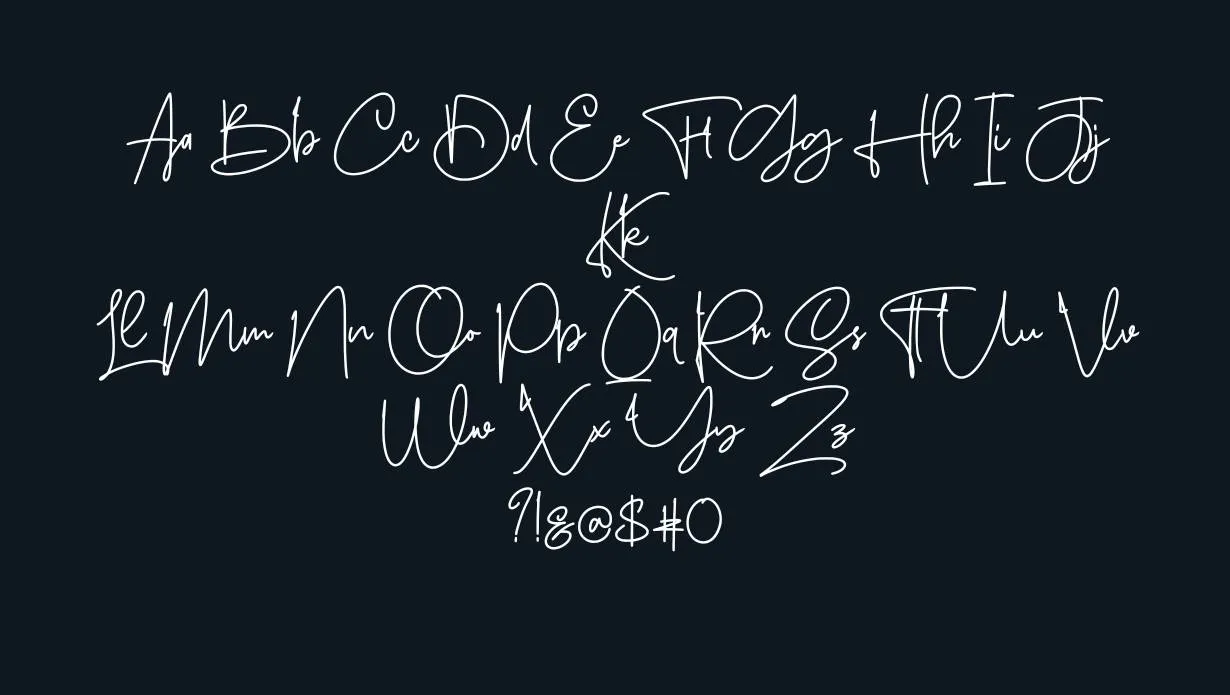 Aa Bb Cc Dd Ee Ff Gg Hh Ii Jj
Kk
Ll Mm Nn Oo Pp Qq Rr Ss Tt Uu Vv
Ww Xx Yy Zz
?!&@$#0